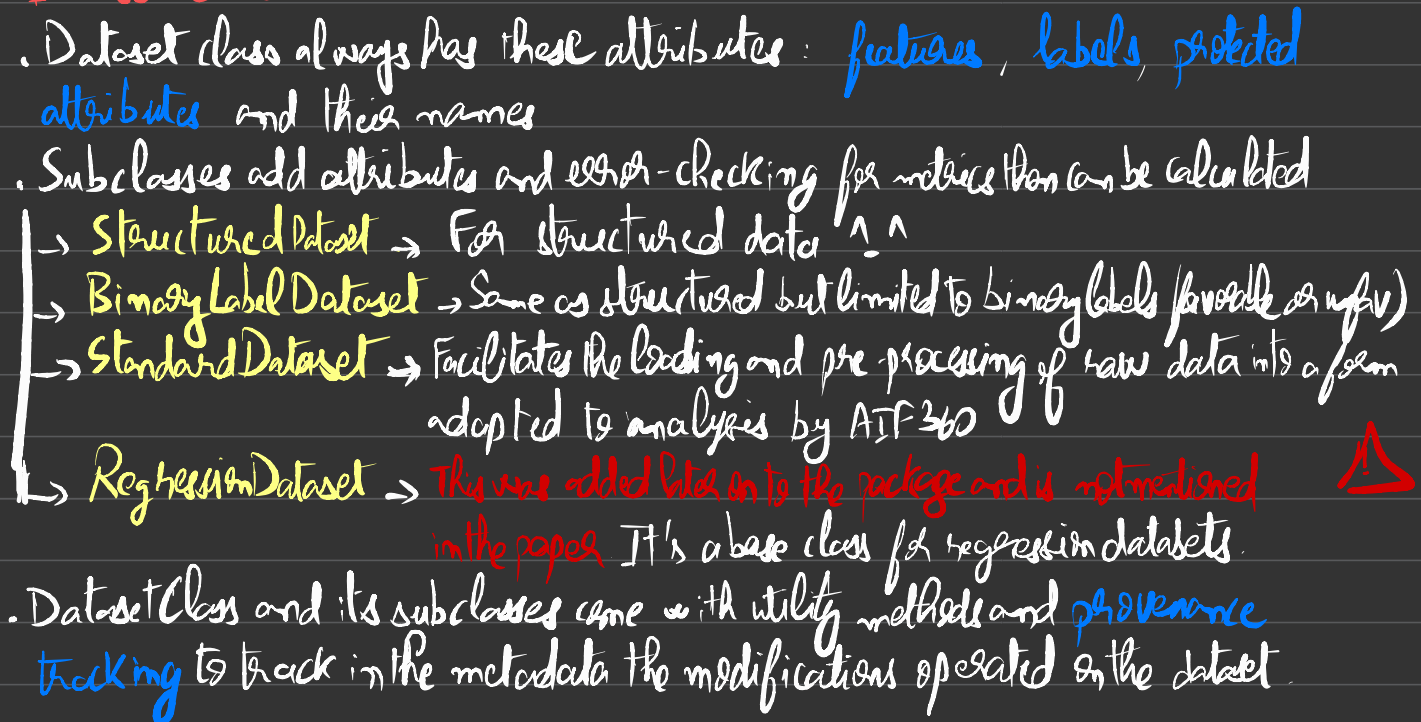 . Dataset class always has these attributes : features, labels, protected
attributes and their names
. Subclasses add attributes and error-checking for metrics than can be calculated
→ StructuredDataset → For structured data ^.^
→ BinaryLabelDataset → Same as structured but limited to binary labels (favorable or unfav)
→ StandardDataset → Facilitates the loading and pre-processing of raw data into a form
adapted to analysis by AIF360
→ RegressionDataset → This was added later on to the package and is not mentioned
in the paper. It's a base class for regression datasets.
. DatasetClass and its subclasses come with utility methods and provenance
tracking to track in the metadata the modifications operated on the dataset.